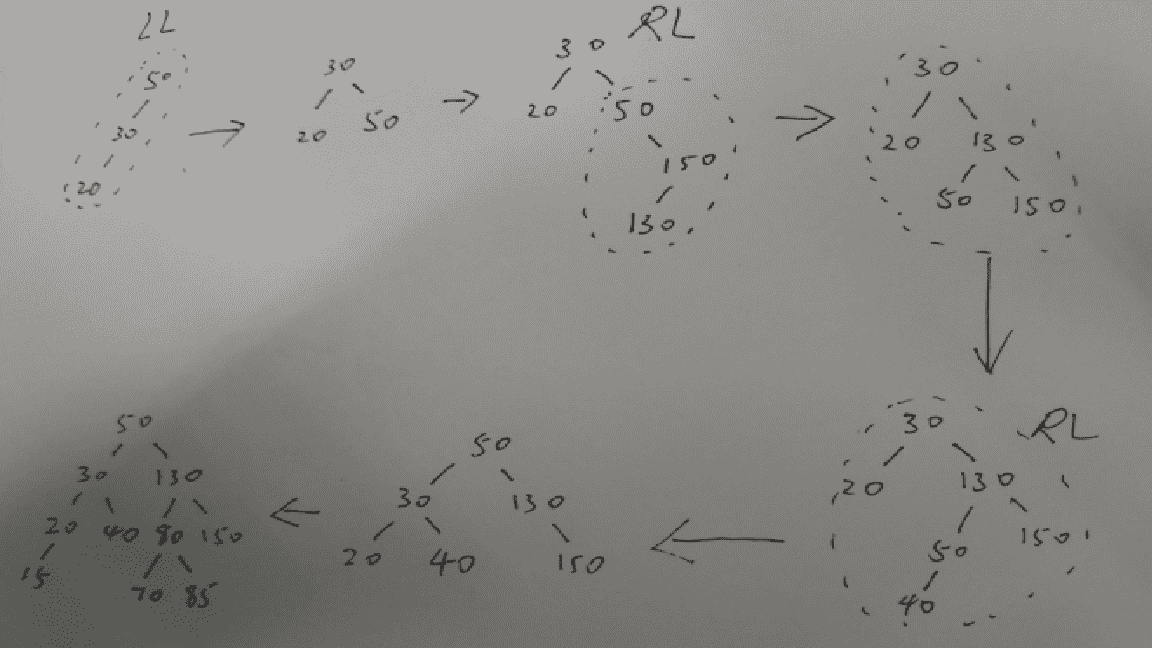 LL
50
30
20
30
20 50
RL
30
20 50
150
130
30
20 130
50 150
RL
30
20 130
50 150
40
50
30 130
20 40 150
50
30 130
20 40 80 150
15 70 85